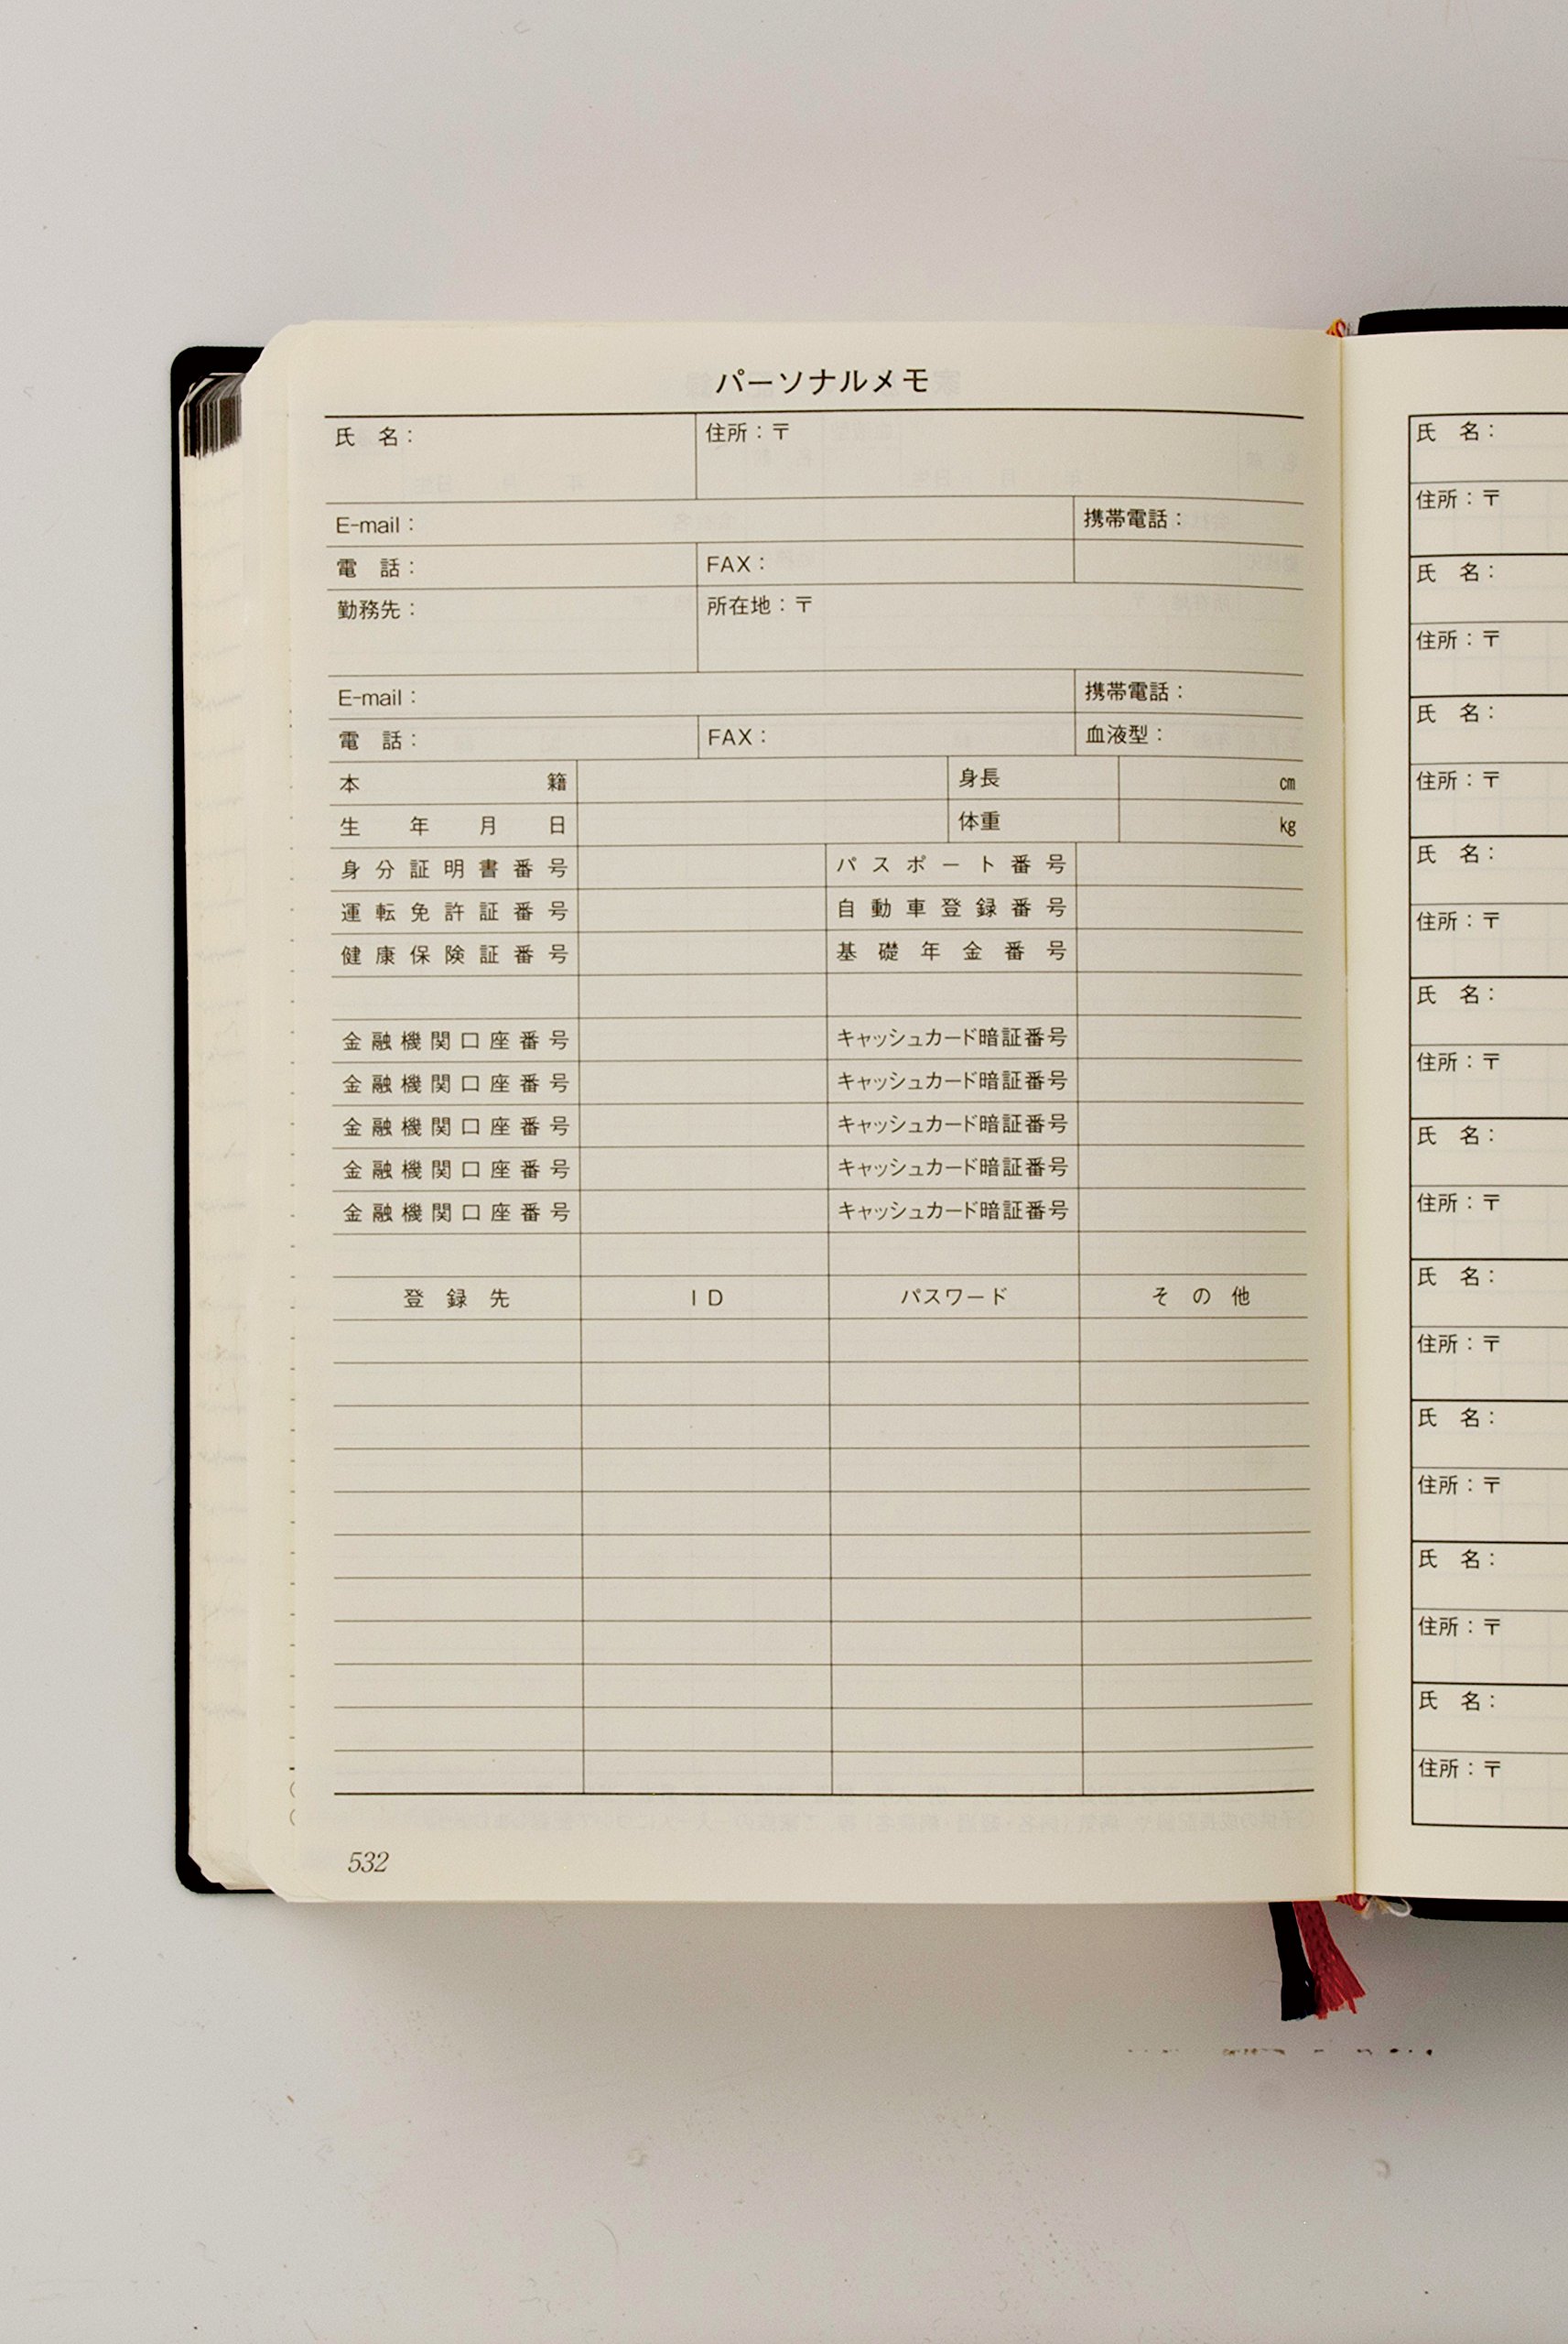 パーソナルメモ
氏 名： 住所：〒
E-mail： 携帯電話：
電 話： FAX：
勤務先： 所在地：〒
E-mail： 携帯電話：
電 話： FAX： 血液型：
本籍 身長 cm
生年月日 体重 kg
身分証明書番号 パスポート番号
運転免許証番号 自動車登録番号
健康保険証番号 基礎年金番号
金融機関口座番号 キャッシュカード暗証番号
金融機関口座番号 キャッシュカード暗証番号
金融機関口座番号 キャッシュカード暗証番号
金融機関口座番号 キャッシュカード暗証番号
金融機関口座番号 キャッシュカード暗証番号
登録先 ID パスワード その他
532
氏 名：
住所：〒
氏 名：
住所：〒
氏 名：
住所：〒
氏 名：
住所：〒
氏 名：
住所：〒
氏 名：
住所：〒
氏 名：
住所：〒
氏 名：
住所：〒
氏 名：
住所：〒
氏 名：
住所：〒